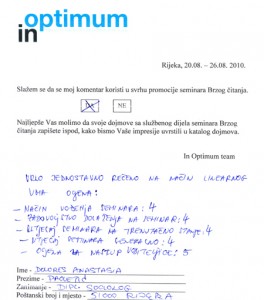 in optimum
Rijeka, 20.08. – 26.08. 2010.
Slažem se da se moj komentar koristi u svrhu promocije seminara Brzog čitanja.
DA NE
Najljepše Vas molimo da svoje dojmove sa službenog dijela seminara Brzog
čitanja zapišete ispod, kako bismo Vaše impresije uvrstili u katalog dojmova.
In Optimum team
VRLO JEDNOSTAVNO REČENO NA NAČIN LINEARNOG
UMA OCJENA:
- NAČIN VOĐENJA SEMINARA: 4
- ZADOVOLJSTVO DOLAŽENJA NA SEMINAR: 4
- UTJECAJ SEMINARA NA TRENUTAČNO STANJE: 4
- UTJECAJ SEMINARA GENERALNO: 4
- OCJENA ZA NASTUP VODITELJICE: 5
Ime - DOLORES ANASTASIA
Prezime -
Zanimanje - DIPL. SOCIOLOG
Poštanski broj i mjesto - 51000 RIJEKA